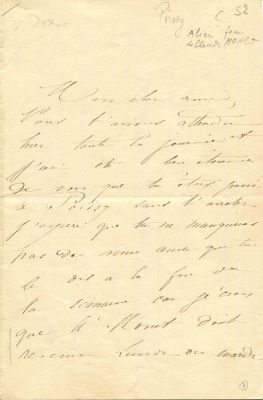 Poissy
C 52
Alice femme
de Claude MONET
Mon cher ami,
Nous t'avions attendu
hier toute la journée et
j'ai été bien étonnée
de voir que tu étais passé
à Poissy sans t'arrêter
j'espère que tu ne manqueras
pas de venir ainsi que tu
le dis à la fin de
la semaine car je crois
que M. Monet doit
revenir Lundi ou mardi